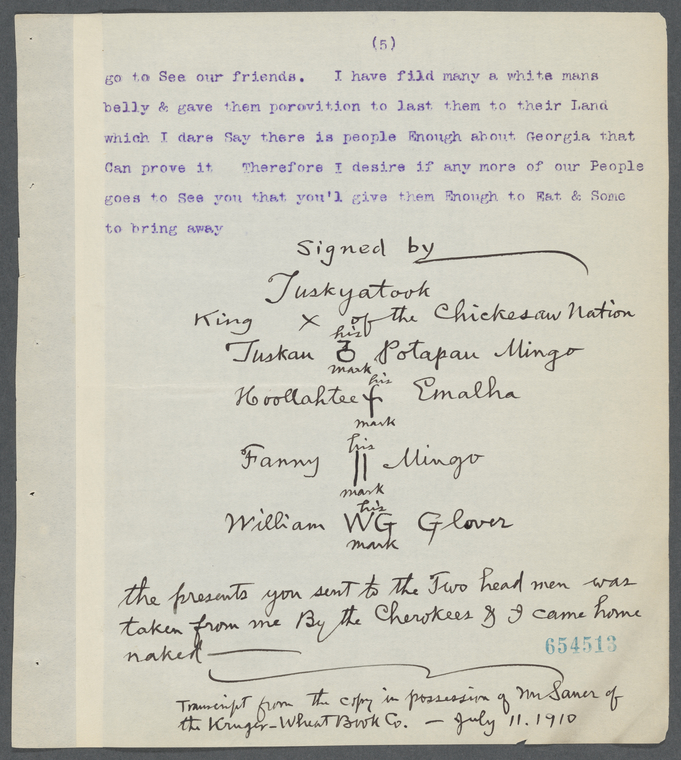 (5)
go to See our friends. I have fild many a white mans
belly & gave them porovition to last them to their Land
which I dare Say there is people Enough about Georgia that
Can prove it Therefore I desire if any more of our People
goes to See you that you'll give them Enough to Eat & Some
to bring away
Signed by
Tuskyatook
King X of the Chickesaw Nation
his
Tuskau Potapau Mingo
mark
his
Hoollahtee Emalha
mark
his
Fanny || Mingo
mark
his
William WG Glover
mark
the presents you sent to the Two head men was
taken from me By the Cherokees & I came home
naked
654513
Transcript from the copy in possession of Mr Saner of
the Kruger-Wheat Book Co. — July 11. 1910